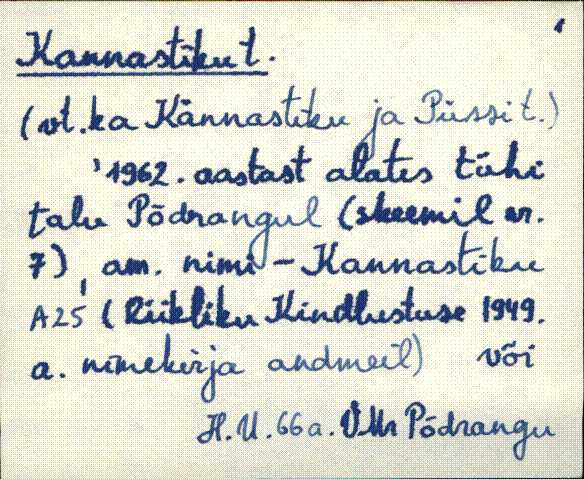 Kannastiku t.
(vt. ka Kännastiku ja Püssi t.)
1962. aastast alates tühi
talu Põdrangul (skeemil nr.
7), am. nimi - Kannastiku
A25 (Riikliku Kindlustuse 1949.
a. nimekirja andmeil) või
H.U. 66 a. V.Mr Põdrangu